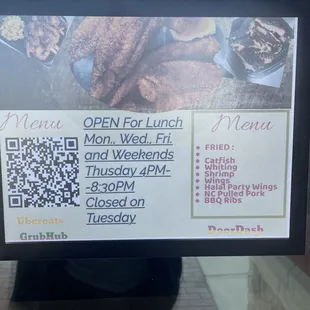 Menu
OPEN For Lunch
Mon., Wed., Fri.
and Weekends
Thusday 4PM-
-8:30PM
Closed on
Tuesday
Ubereats
GrubHub
Menu
FRIED :
Catfish
Whiting
Shrimp
Wings
Halal Party Wings
NC Pulled Pork
BBQ Ribs
DoorDash